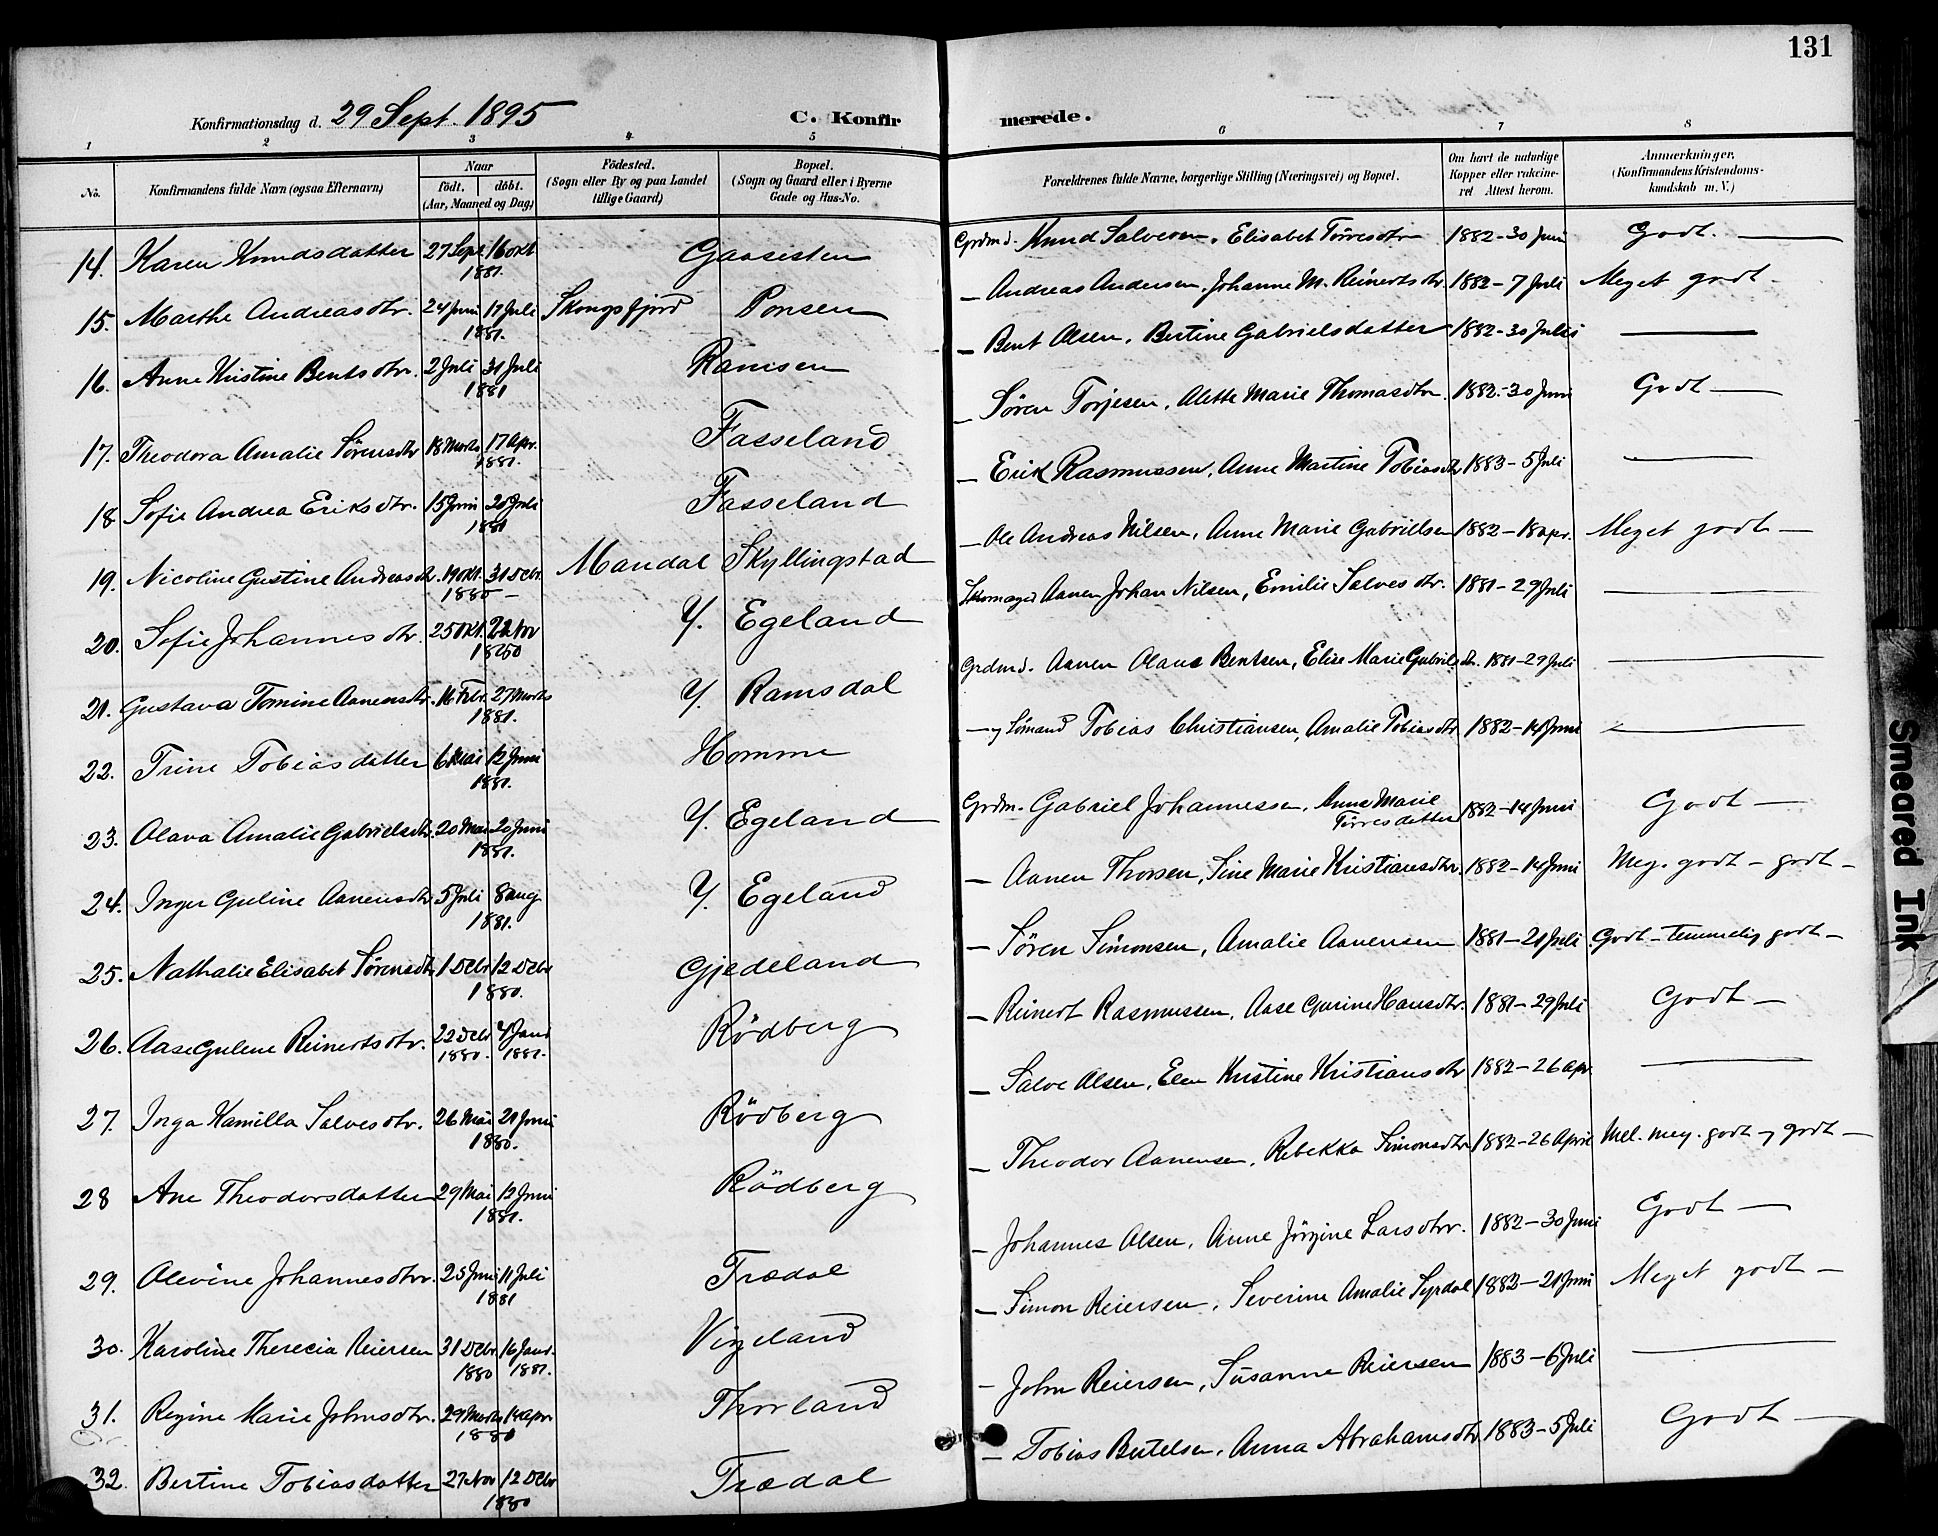 131
Konfirmationsdag d. 29 Sept. 1895
C. Konfirmerede.
1 2 3 4 5 6 7 8
No. Konfirmandens fulde Navn (ogsaa Efternavn) Naar födt. döbt. (Aar, Maaned og Dag) Födested. (Sogn eller By og paa Landet tillige Gaard) Bopæl. (Sogn og Gaard eller i Byerne Gade og Hus-No. Forældrenes fulde Navne, borgerlige Stilling (Næringsvei) og Bopæl. Om havt de naturlige Kopper eller vaccineret Attest herom. Anmærkninger. (Konfirmandens Kristendomskundskab m. V.)
14. Karen Knudsdatter 27 Sept. 16 okt 1881. Gaasesten Grdmd. Knud Salvesen, Elisabet Törresdtr 1882 - 30 Juni Godt. —
15. Marthe Andreasdtr. 24 Juni 17 Juli 1881. Skongsfjord Ponsen — Andreas Andersen, Johanne M. Reinertsdtr. 1882 - 7 Juli Meget godt -
16. Anne Kristine Bentsdtr. 2 Juli 31 Juli 1881 Ramsen — Bent Olsen, Bertine Gabrielsdatter 1882 - 30 Juli —
17. Theodora Amalie Sörensdtr 18 Marts 17 Apr. 1881. Fasseland — Sören Torjesen, Alette Marie Thomasdtr. 1882 - 30 Juni Godt —
18 Sofie Andrea Eriksdtr. 15 Juni 20 Juli 1881 Fasseland — Erik Rasmussen, Anne Martine Tobiasdtr 1883 - 5 Juli —
19. Nicoline Gustine Andreasdtr. 19 okt. 31 Debr. 1880 - Mandal Skyllingstad — Ole Andreas Nilsen, Anne Marie Gabrielsen 1882 - 18 apr. Meget godt —
20. Sofie Johannesdtr. 25 Okt. Nov 1880 Y. Egeland Skomager Aanen Johan Nilsen, Emilie Salvesdtr. 1881 - 29 Juli —
21. Gustava Tomine Aanensdtr. 16 Febr. 27 Marts 1881. Y. Ramsdal Grdmd. Aanen Olaus Bentsen, Elise Marie Gabrielsdtr. 1881 - 29 Juli —
22. Trine Tobiasdatter 6 Mai 12 Juni 1881. Homme — og Sömand Tobias Christiansen, Amalie Tobiasdtr 1882 - 14 Juni —
23. Olava Amalie Gabrielsdtr. 20 Mai 20 Juni 1881. Y. Egeland Grdm. Gabriel Johannessen, Anne Marie Törresdatter 1882 - 14 Juni Godt —
24. Inger Guline Aanensdtr 5 Juli 8 aug 1881. Y. Egeland — Aanen Thorsen, Sine Marie Kristiansdtr. 1882 - 14 Juni Meg. godt - godt -
25. Nathalie Elisabet Sörensdtr 1 Debr 12 Debr 1880. Gjedeland — Sören Simonsen, Amalie Aanensen 1881 - 21 Juli Godt - temmelig godt -
26. Aase Gulene Reinertsdtr. 22 Debr 1880. 4 Janr 1881. Rödberg — Reinert Rasmussen, Aase Gurine Hansdtr. 1881 - 29 Juli Godt —
27. Inga Kamilla Salvesdtr. 26 Mai 21 Juni 1880. Rödberg — Salve Olsen, Elen Kristine Kristiansdtr 1882 - 26 apr —
28 Ane Theodorsdatter 29 Mai 12 Juni 1881. Rödberg — Theodor Aanensen, Rebekka Simonsdtr 1882 - 26 April Mel. meg. godt og godt —
29. Olevine Johannesdtr. 25 Juni 11 Juli 1881 Trædal — Johannes Olsen, Anne Jörgine Larsdtr. 1882 - 30 Juni Godt —
30. Karoline Therecia Reiersen 31 Debr 1880 16 Janr. 1881. Vigeland — Simon Reiersen, Severine Amalie Syrdal 1883 - 21 Juni Meget godt —
31. Regine Marie Johnsdtr. 29 Marts 14 apr 1880 Thorland — John Reiersen, Susanne Reiersen 1883 - 6 Juli —
32. Bertine Tobiasdatter 27 Nov 12 Debr 1880 Trædal — Tobias Bertelsen, Anna Abrahamsdtr 1883 - 5 Juli Godt —
Smeared Ink